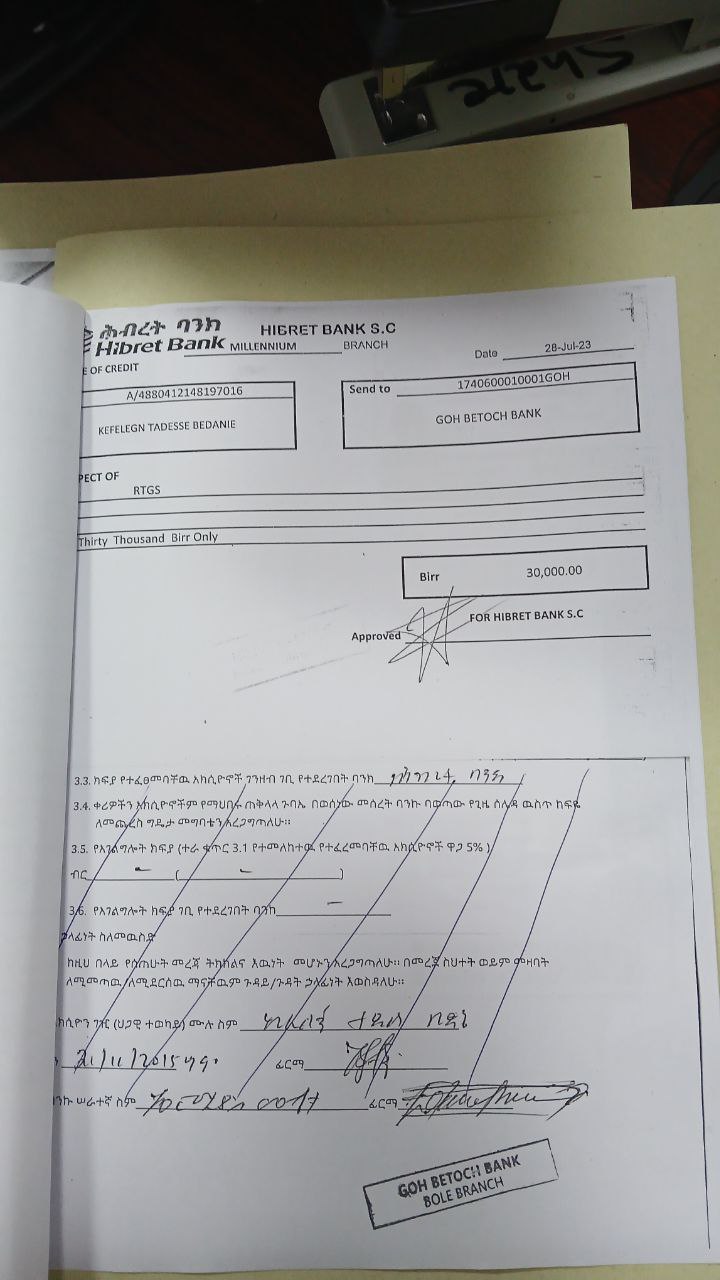 Share
ሕብረት ባንክ HIBRET BANK S.C
Hibret Bank MILLENNIUM BRANCH Date 28-Jul-23
E OF CREDIT
A/4880412148197016
KEFELEGN TADESSE BEDANIE
Send to 1740600010001GOH
GOH BETOCH BANK
PECT OF
RTGS
Thirty Thousand Birr Only
Birr 30,000.00
FOR HIBRET BANK S.C
Approved
3.3. ክፍያ የተፈፀመባቸዉ አክሲዮኖች ገንዘብ ገቢ የተደረገበት ባንክ ሕብረት ባንክ
3.4. ቀሪዎችን አክሲዮኖችም የማህበሩ ጠቅላላ ጉባኤ በወሰነው መሰረት ባንኩ ባወጣው የጊዜ ሰሌዳ ዉስጥ ከፍዬ
ለመጨረስ ግዴታ መግባቴን አረጋግጣለሁ።
3.5. የአገልግሎት ክፍያ (ተራ ቁጥር 3.1 የተመለከተዉ የተፈረመባቸዉ አክሲዮኖች ዋጋ 5% )
ብር ( )
3.6. የአገልግሎት ክፍያ ገቢ የተደረገበት ባንክ
ኃላፊነት ስለመዉሰድ
ከዚህ በላይ የሰጠሁት መረጃ ትክክልና እዉነት መሆኑን አረጋግጣለሁ። በመረጃ ስህተት ወይም ምዛባት
ለሚመጣዉ /ለሚደርሰዉ ማናቸዉም ጉዳይ/ጉዳት ኃላፊነት እወስዳለሁ።
ክሲዮን ገዢ (ህጋዊ ተወካይ) ሙሉ ስም ከፈለኝ ታደሰ በዳኔ
21/11/2015 ዓ.ም. ፊርማ
ንኩ ሠራተኛ ስም ፊርማ
GOH BETOCH BANK
BOLE BRANCH